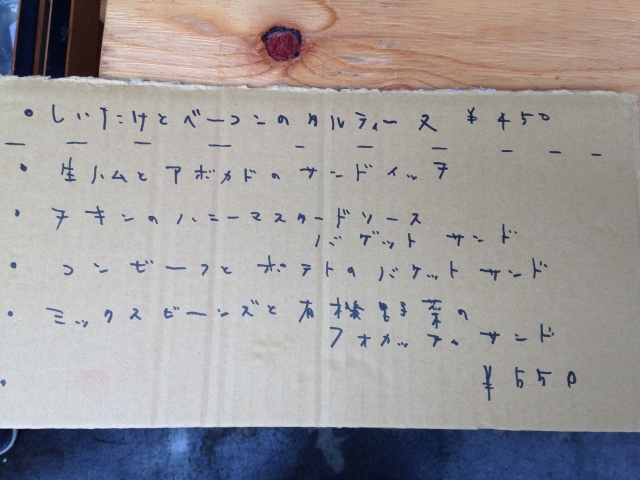 ・しいたけとベーコンのタルティーヌ ¥450
・生ハムとアボカドのサンドイッチ
・チキンのハニーマスタードソース
バゲットサンド
・コンビーフとポテトのバケットサンド
・ミックスビーンズと有機野菜の
フォカッチャサンド
¥550